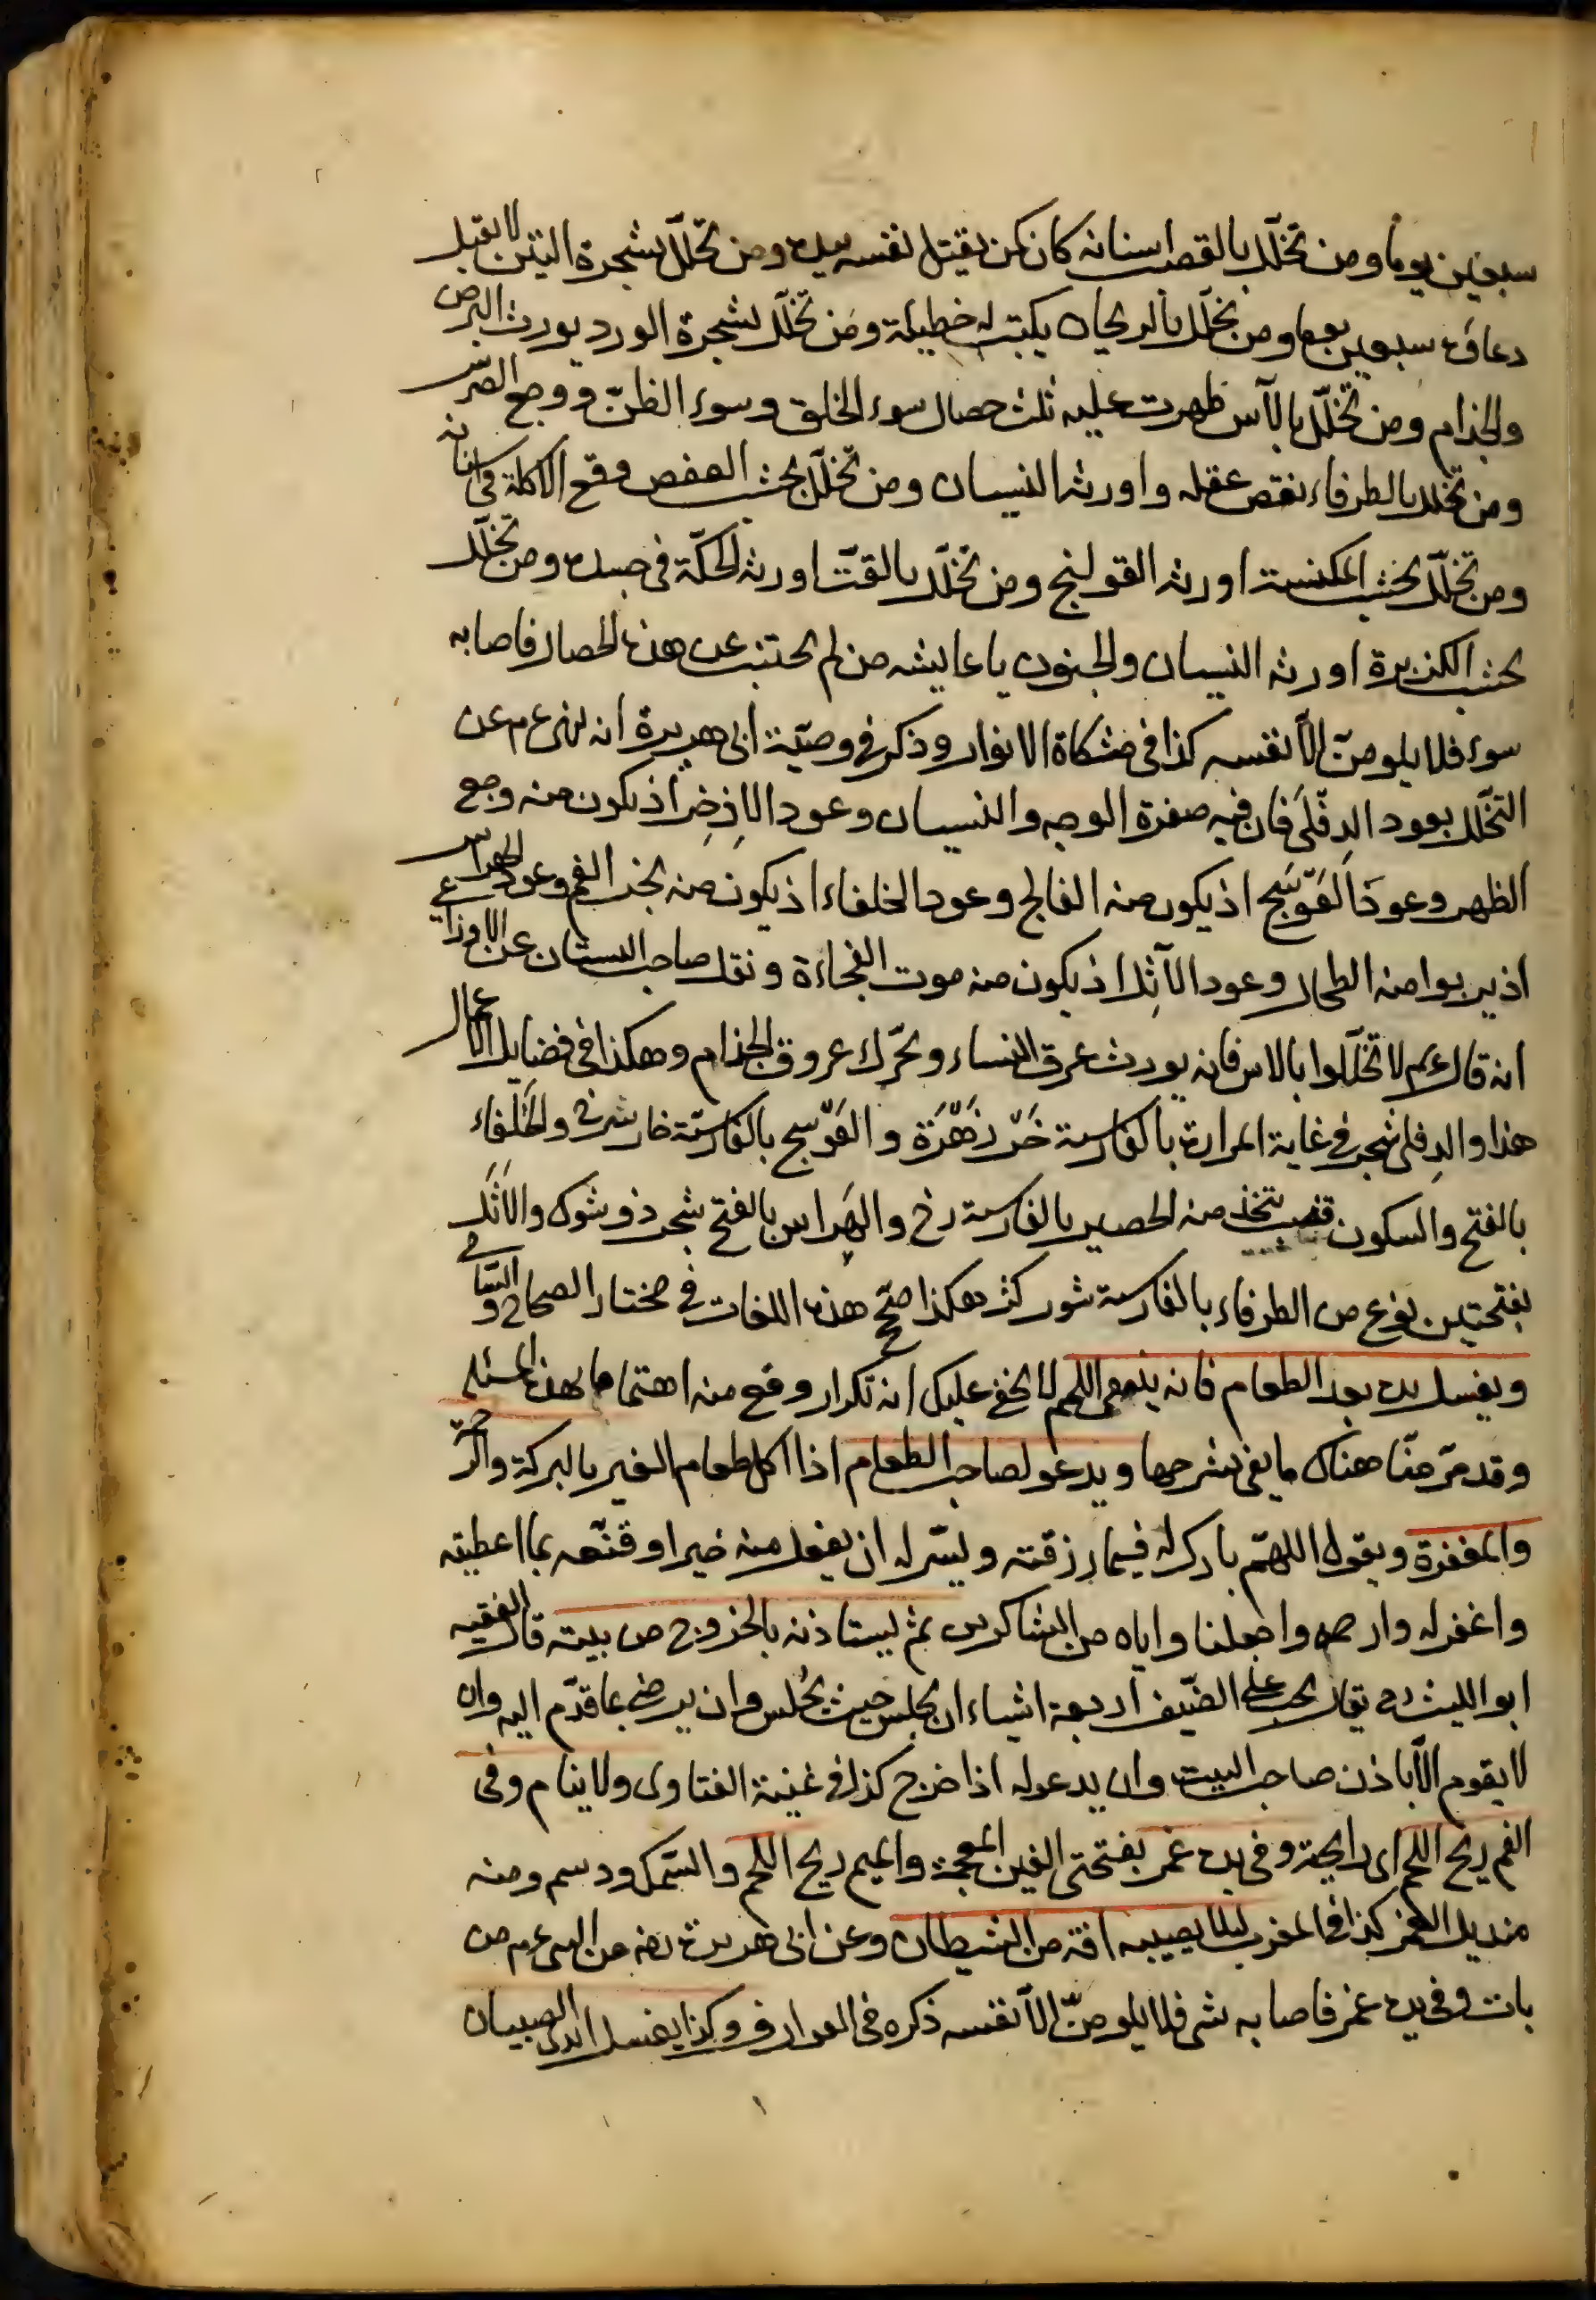 سبعين يوما ومن تخلّل بالقصب اسنانه كان كمن يقتل نفسه بيده ومن تخلّل بشجرة التين لا يقبل
دعاؤه سبعين يوما ومن تخلّل بالريحان يكتب له خطيئة ومَن تخلّل بشجرة الورد يورث البرص
والجذام ومن تخلّل بالآس ظهرت عليه ثلث خصال سوء الخلق وسوء الظنّ ووجع الضرس
ومن تخلل بالطرفاء نقص عقله واورثه النسيان ومن تخلّل بخشب العفص وقع الاكلة في اسنانه
ومن تخلّل بخشب المكنسة اورثه القولنج ومن تخلّل بالقتّ اورثه الحكّة في جسده ومن تخلّل
بخشب الكزبرة اورثه النسيان والجنون يا عايشه من لم يجتنب عن هذه الخصال فاصابه
سوء فلا يلومنّ الّا نفسه كذا في مشكاة الانوار وذكر في وصيّة ابى هريرة انه نهى عم عن
التخلّل بعود الدِفْلَى فان فيه صفرة الوجه والنسيان وعود الاِذخِر اذ يكون منه وجع
الظهر وعود العَوْسَج اذ يكون منه الفالج وعود الحلفاء اذ يكون منه بخر الفم وعود الهراس
اذ يربو منه الطحال وعود الاثل اذ يكون منه موت الفجاءة ونقل صاحب البستان عن الاوزاعى
انه قال عم لا تخلّلوا بالاس فانه يورث عرق النساء ويحرّك عروق الجذام وهكذا في فضايل الاعمال
هذا والدِفلى شجر في غاية المرارة بالفارسية خَرْ زَهْرَة والعَوْسج بالفارسيّة خار شرفى والحَلْفاء
بالفتح والسكون قصب يتخذ منه الحصير بالفارسية رخ والهَراس بالفتح شجر ذو شوك والاَثَل
بفتحتين نوع من الطرفاء بالفارسية شور كثر هكذا صحّ هذه اللغات في مختار الصحاح والسّامى
ويغسل يده بعد الطعام فانه ينفى اللمم لا يخفى عليك انه تكرار وقع منه اهتماما بهذه المسئلة
وقد مرّ منّا هناك ما يفى بشرحها ويدعو لصاحب الطعام اذا اكل طعام الغير بالبركة والرحمة
والمغفرة ويقول اللهمّ بارك له فيما رزقته ويسّر له ان يفعل منه خيرا وقنّعه بما اعطيته
واغفر له وارحمه واجعلنا واياه من الشاكرين ثم ليستاذنه بالخروج من بيته قال الفقيه
ابو الليث رح يقال يجب على الضيف اربعة اشياء ان يجلس حيث يُجلس وان يرضى بما قدّم اليه وان
لا يقوم الّا باذن صاحب البيت وان يدعو له اذا خرج كذا في غنية الفتاوى ولا ينام وفى
الفم ريح اللحم اى رايحته وفى يده غمر بفتحتى الغين المعجمة والميم ريح اللحم والسّمك ودسم ومنه
منديل الغمر كذا في المغرب ليلا يصيبه افة من الشيطان وعن ابى هريرة رضه عن النبى عم من
بات وفى يده غمر فاصابه شى فلا يلومنّ الّا نفسه ذكره في العوارف وكذا يغسل ايدى الصبيان